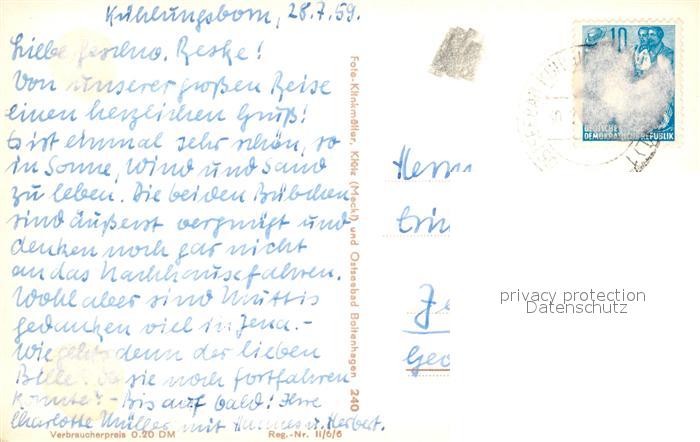 Kühlungsborn, 28.7.59.
Liebe Geschw. Reske!
Von unserer großen Reise
einen herzlichen Gruß!
Es ist einmal sehr schön, so
in Sonne, Wind und Sand
zu leben. Die beiden Bübchen
sind äußerst vergnügt und
denken noch gar nicht
an das Nachhausefahren.
Wohl aber sind Muttis
Gedanken viel in Jena.-
Wie geht's denn der lieben
sie noch fortfahren
konnte? - Bis auf bald! Ihre
Charlotte Müller mit Hannes u. Herbert.
Verbraucherpreis 0.20 DM
Reg.-Nr. II/6/6
Foto-Klinkmüller, Klütz (Meckl) und Ostseebad Boltenhagen 240
10
DEUTSCHE
DEMOKRATISCHE REPUBLIK
Herrn
Erin
Je
Geo
privacy protection
Datenschutz